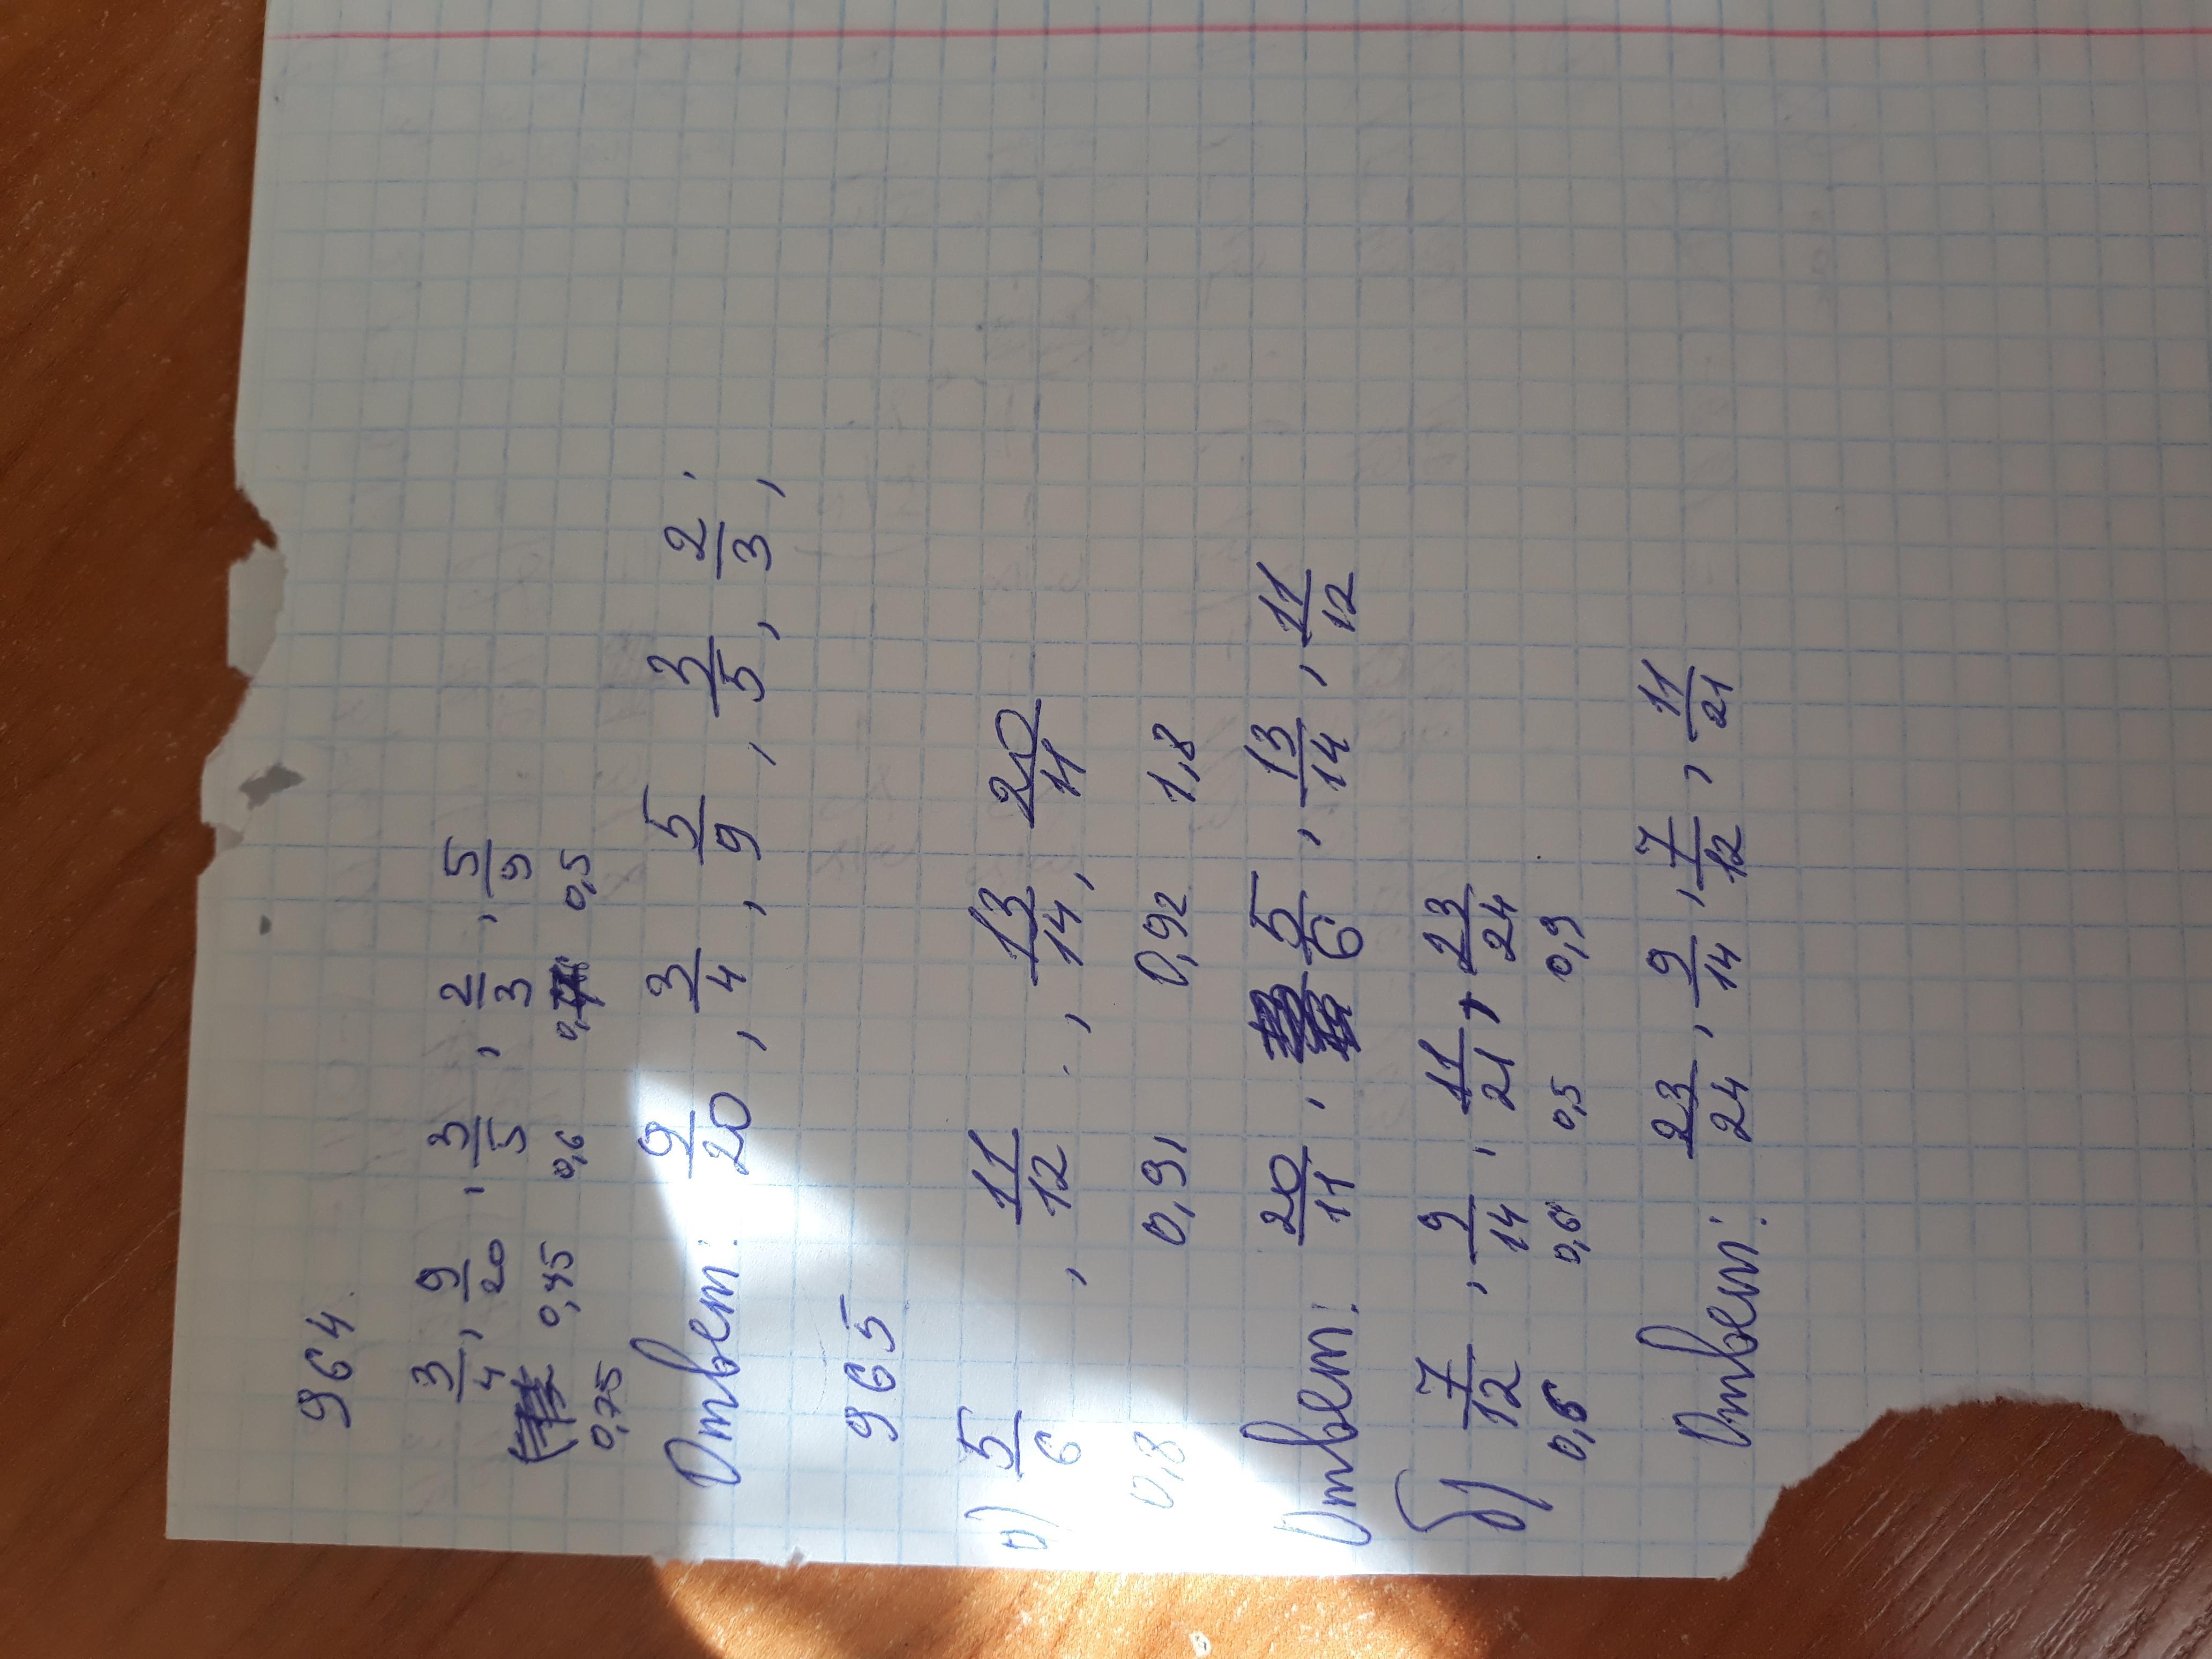 964
3/4, 9/20, 3/5, 2/3, 5/9
0,45 0,6 0,5
0,75
Ответ: 9/20, 3/4, 5/9, 3/5, 2/3,
965
а) 5/6, 11/12, 13/14, 20/11
0,8 0,91 0,92 1,8
Ответ: 20/11, 5/6, 13/14, 11/12
б) 7/12, 9/14, 11/21, 23/24
0,6 0,5 0,9
Ответ: 23/24, 9/14, 7/12, 11/21